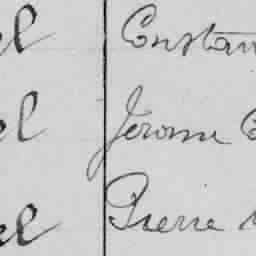 el Constan
el Jerome C
el Pierre